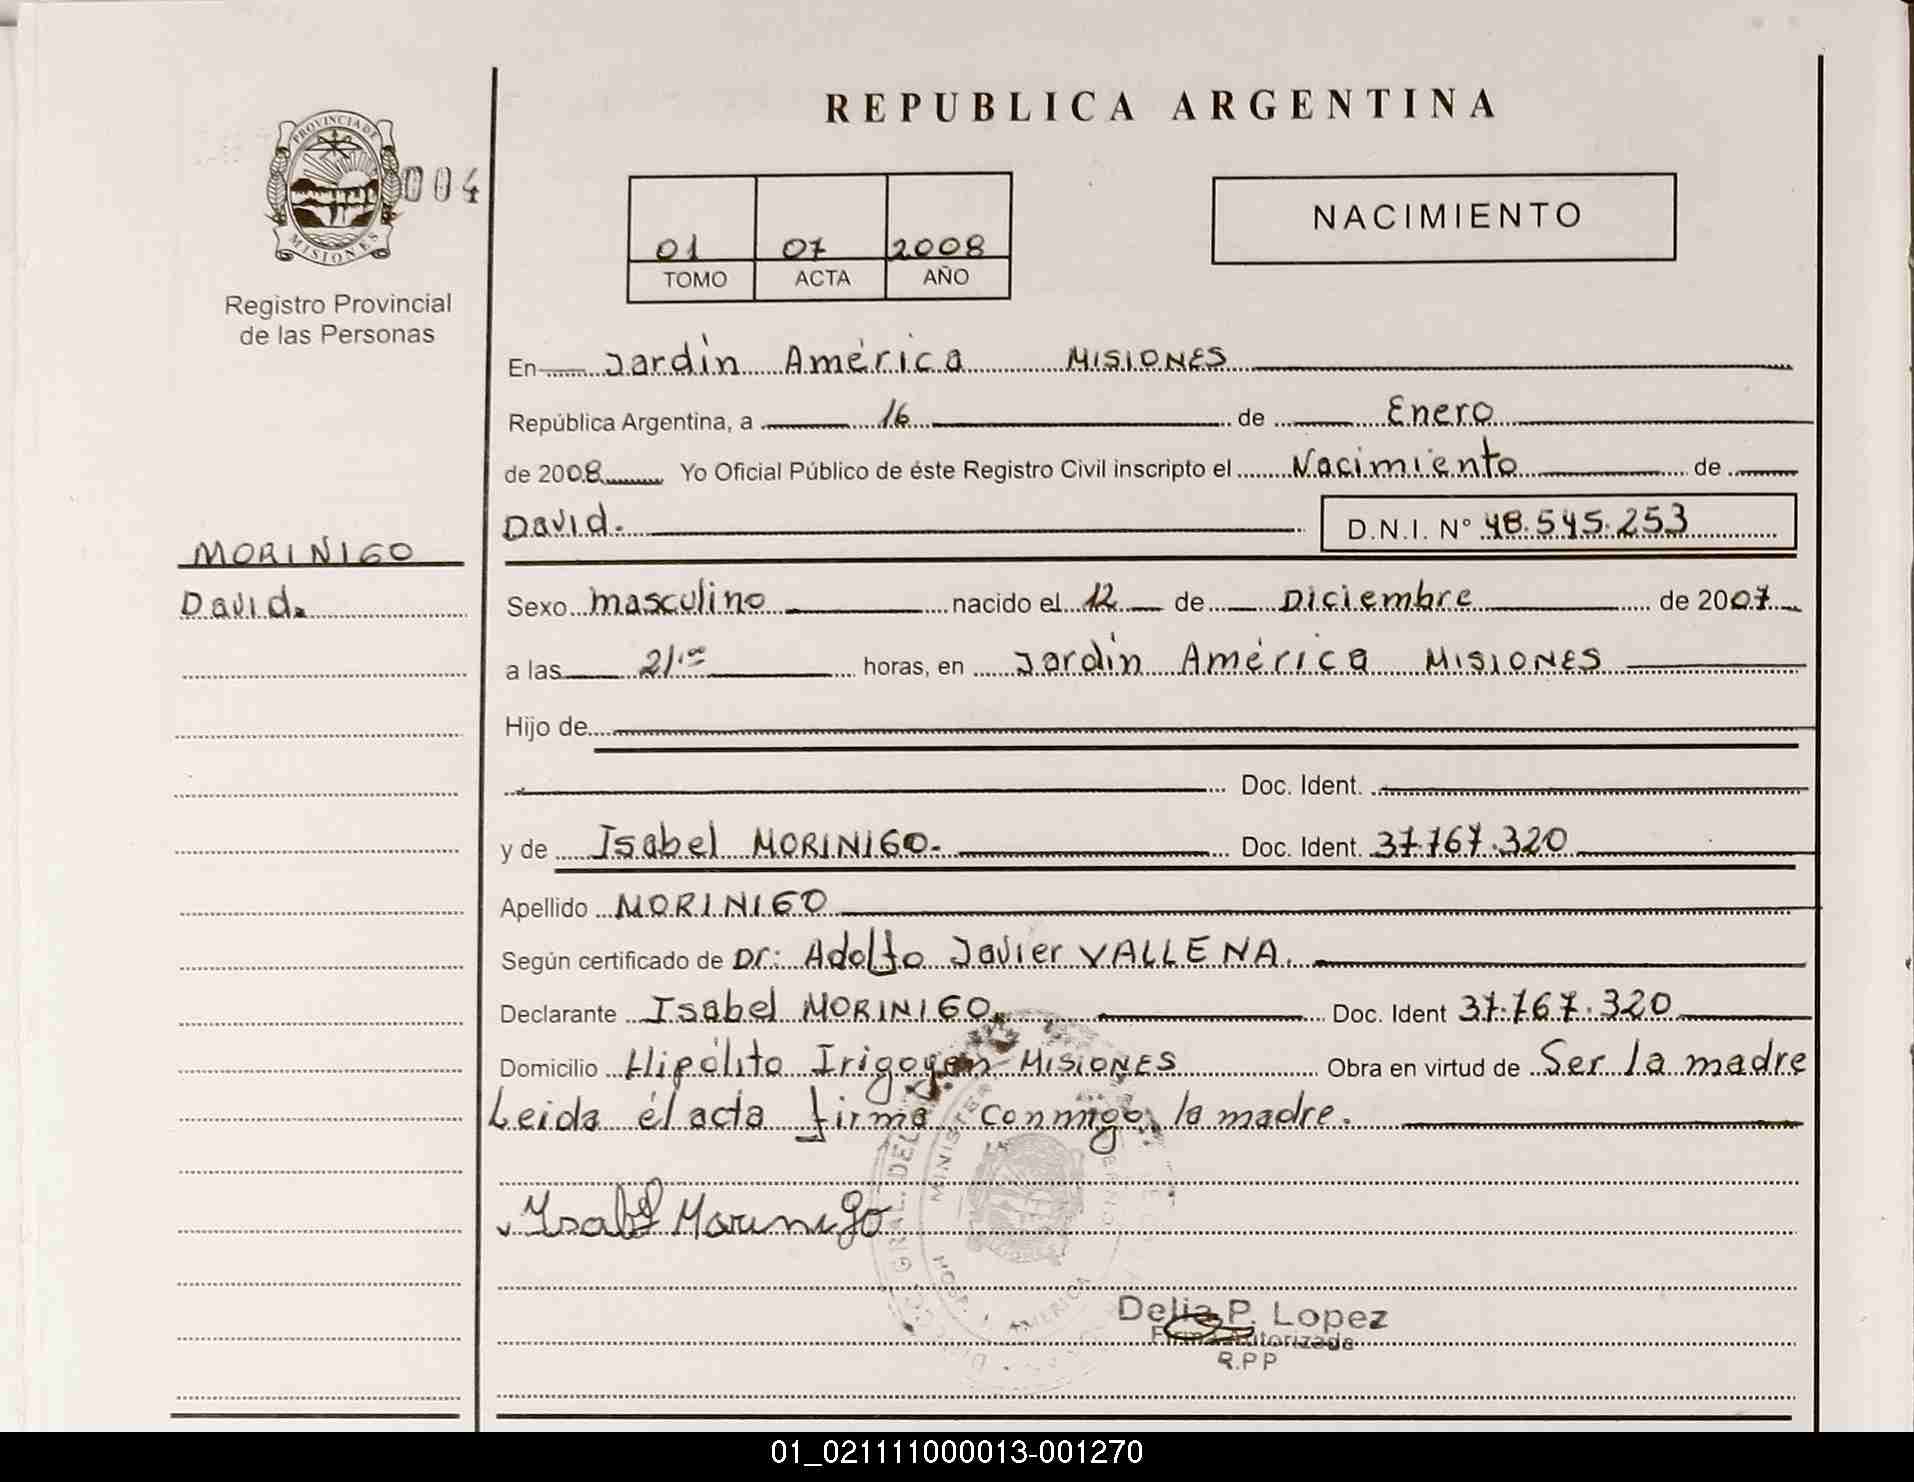 REPUBLICA ARGENTINA
PROVINCIA DE
MISIONES
004
Registro Provincial
de las Personas
01 07 2008
TOMO ACTA AÑO
NACIMIENTO
En Jardín América MISIONES
República Argentina, a 16 de Enero
de 2008 Yo Oficial Público de éste Registro Civil inscripto el Nacimiento de
David. D.N.I. N° 48.545.253
MORINIGO
David.
Sexo masculino nacido el 12 de Diciembre de 2007
a las 21.00 horas, en Jardín América MISIONES
Hijo de
Doc. Ident.
y de Isabel MORINIGO. Doc. Ident. 37.767.320
Apellido MORINIGO
Según certificado de Dr: Adolfo Javier VALLENA.
Declarante Isabel MORINIGO. Doc. Ident 37.767.320
Domicilio Hipólito Irigoyen MISIONES Obra en virtud de Ser la madre
Leida él acta firma conmigo, la madre.
Ysabel Morinigo
Delia P. Lopez
Firma Autorizada
R.P.P
01_021111000013-001270